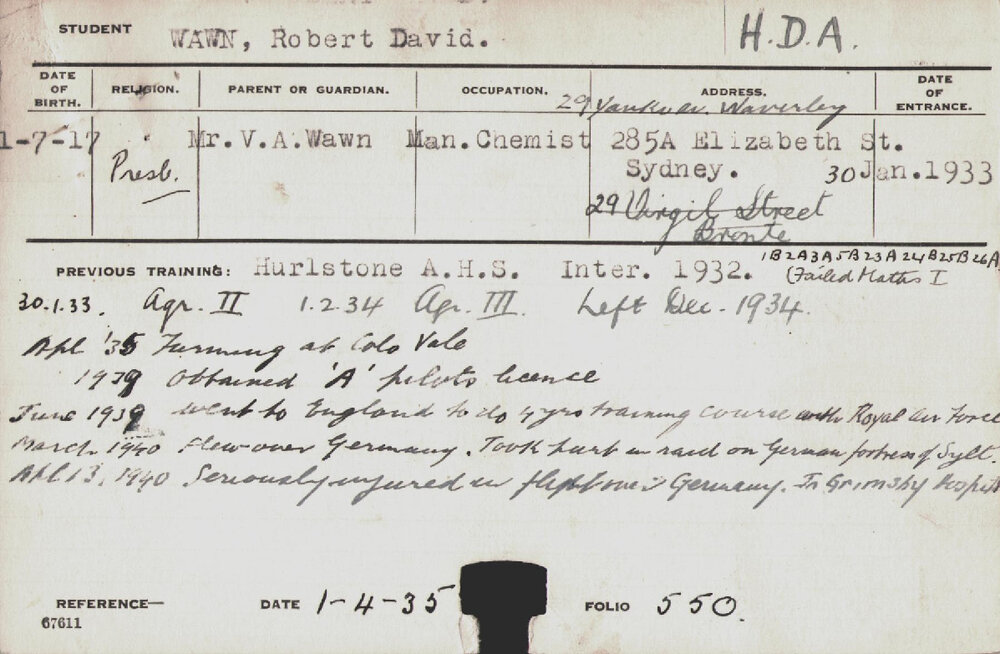 STUDENT WAWN, Robert David. H.D.A.
DATE OF BIRTH. RELIGION. PARENT OR GUARDIAN. OCCUPATION. ADDRESS. DATE OF ENTRANCE.
29 Av. Waverley
1-7-17 Presb. Mr. V.A. Wawn Man. Chemist 285A Elizabeth St.
Sydney. 30 Jan. 1933
29 Virgil Street
Bronte
PREVIOUS TRAINING: Hurlstone A.H.S. Inter. 1932. 1B 2A 3A 5B 23A 24B 25B 26A
(Failed Maths I
30.1.33. Agr. II 1.2.34 Agr. III. Left Dec. 1934.
Apl '35 Farming at Colo Vale
1939 Obtained 'A' pilots licence
June 1939 went to England to do 4 yrs training course with Royal Air Force
March 1940 Flew over Germany. Took part in raid on German fortress of Sylt.
Apl 13, 1940 Seriously injured in flight over Germany. In Grimsby Hospital
REFERENCE— DATE 1-4-35 FOLIO 550.
67611